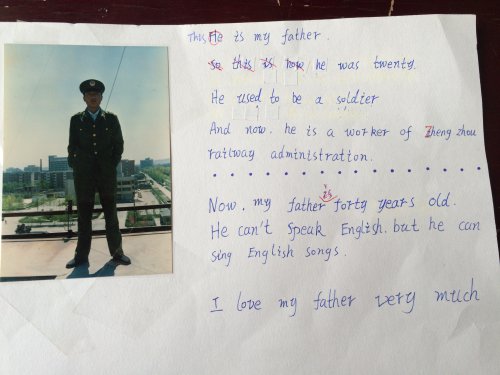 This He is my father.
So this is now he was twenty.
He used to be a soldier
And now. he is a worker of Zheng zhou
railway administration.
Now. my father is forty years old.
He can't speak English. but he can
sing English songs.
I love my father very much